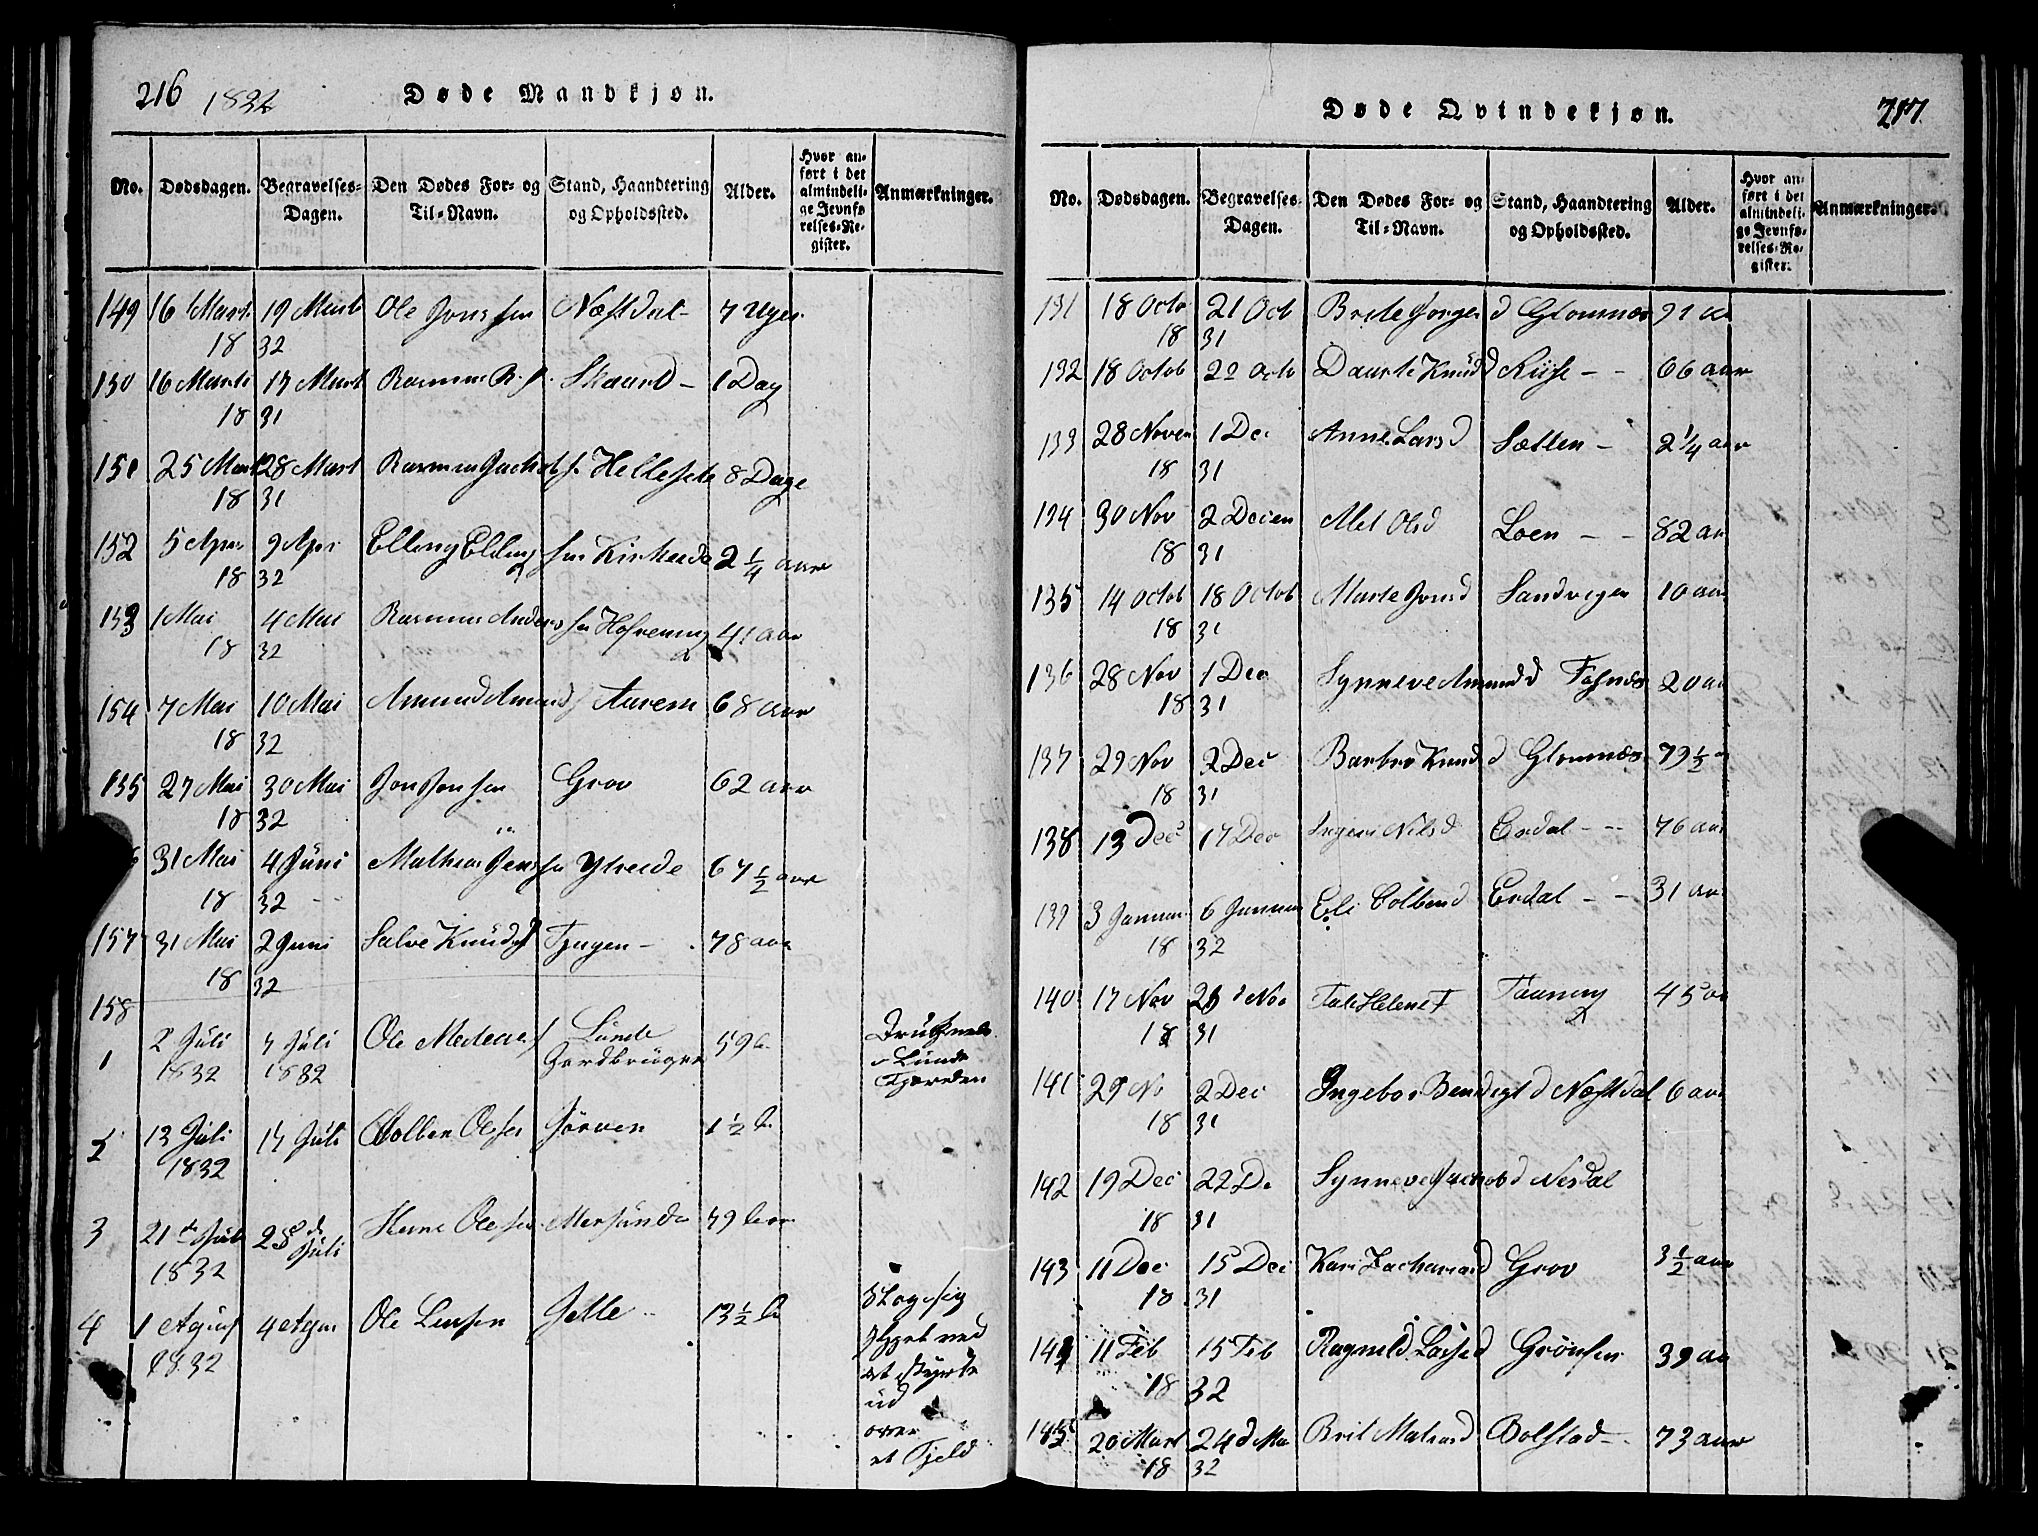 216 1832 Døde Mandkjøn.
No. Dødsdagen. Begravelses-Dagen. Den Dødes For- og Til-Navn. Stand, Haandtering og Opholdssted. Alder. Hvor anført i det almindelige Jevnførelses-Register. Anmærkninger.
149 16 Marts 19 Marts Ole Jonssen Næstdal 7 Uger
18 32
150 16 Marts 17 Mart Rasmus R. s. Skaard - 1 Dag
18 31
151 25 Mart 28 Mart Rasmus Jachobs Hellesete 8 Dage
18 31
152 5 Apr 9 Apr Elling Elling sen Kirkeeide 2 1/4 aar
18 32
153 1 Mai 4 Mai Rasmus Anders sen Hofrening 41 aar
18 32
154 7 Mai 10 Mai Amund Amunds Aureem 68 aar
18 32
155 27 Mai 30 Mai Jon Jonsen Grov 62 aar
18 32
31 Mai 4 Juni Mathias Jenssen Ytreeide 67 1/2 aar
18 32
157 31 Mai 2 Juni Salve Knuds Tjugen - 78 aar
18 32
158
1 2 Juli 7 Juli Ole Lunde 59
1832 1832 Gardbruger
Lunde
Fjorden
2 13 Juli 17 Juli Colben Olsen Jørven 1 1/2
1832
3 21 Juli 28 d Juli Olsen 79
1832
4 1 August 4 Agus Ole Jelle 13 1/2
1832
Slog sig
ved
at styrte
ud
over
et Fjeld
Døde Qvindekjøn. 217.
No. Dødsdagen. Begravelses-Dagen. Den Dødes For- og Til-Navn. Stand, Haandtering og Opholdssted. Alder. Hvor anført i det almindelige Jevnførelses-Register. Anmærkninger.
131 18 Octo 21 Oct Brite Jørgens d Glomnæs 91 aa
18 31
132 18 Octob 22 Octo Daarte Knuds d Riise - - 66 aar
133 28 Novem 1 De Anne Lars d Sætten - 2 1/4 aar
18 31
134 30 Nov 2 Decem Met Ols d Loen - - 82 aar
18 31
135 14 Octob 18 Octob Marte Jons d Sandvigen 10 aar
18 31
136 28 Nov 1 Dec Synneve Amunds d Fosnæs 20 aar
18 31
137 29 Nov 2 Dec Barbro Knud d Glomnæs 79 1/2 a
18 31
138 13 Dec 17 Dec Nils d Erdal - - 76 aar
139 3 Januar 6 Januar Eli Colbens d Erdal - - 31 aar
18 32
140 17 Nov Nov Helene Taaning 45 aa
18 31
141 29 No 2 Dec Ingebor Bendigt d Næstdal 6 aar
18 31
142 19 Dec 22 De Synneve Jachob d Nesdal
18 31
143 11 Dec 15 Dec Kari Zacharias d Grov 3 1/2 aar
18 31
144 11 Feb 15 Feb Ragnild Lasse d Grønfur 39 aa
18 32
145 20 Mart 24 d Ma Brit Mats d Bolstad - 73 aar
18 32